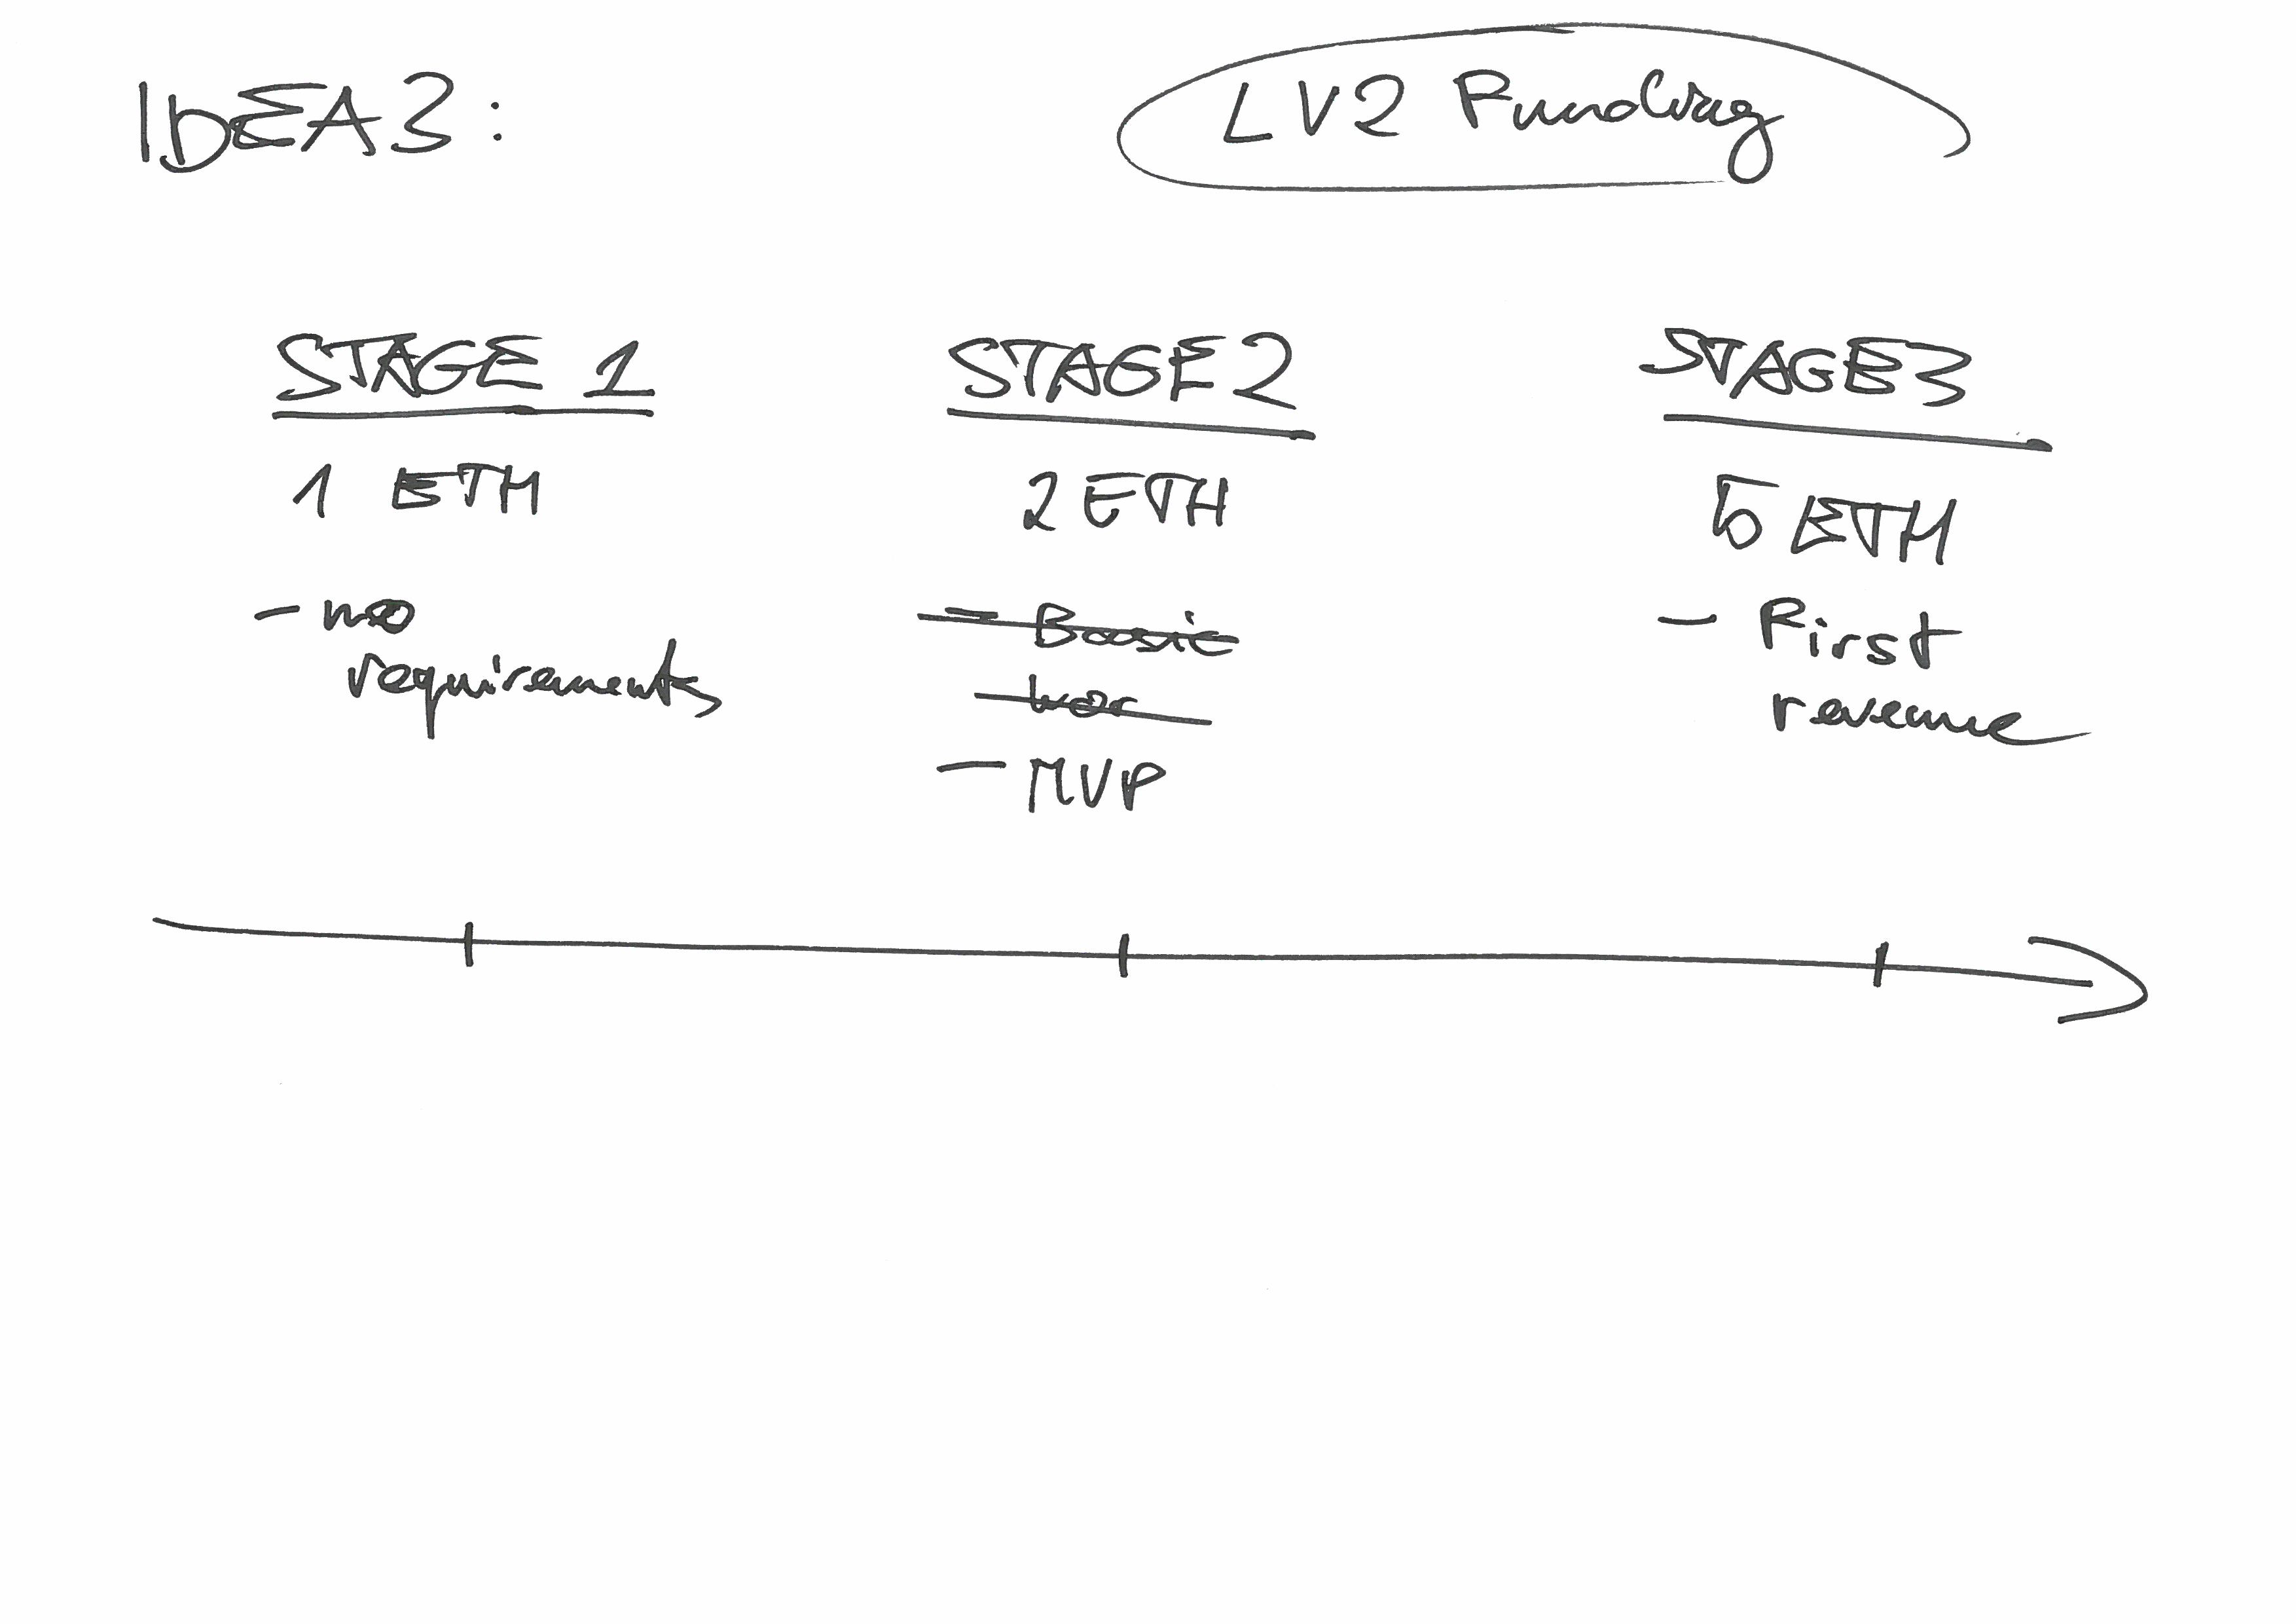 IDEA 3:
LV2 Funding
STAGE 1
1 ETH
- no
requirements
STAGE 2
2 ETH
- Basic
- MVP
STAGE 3
5 ETH
- First
revenue